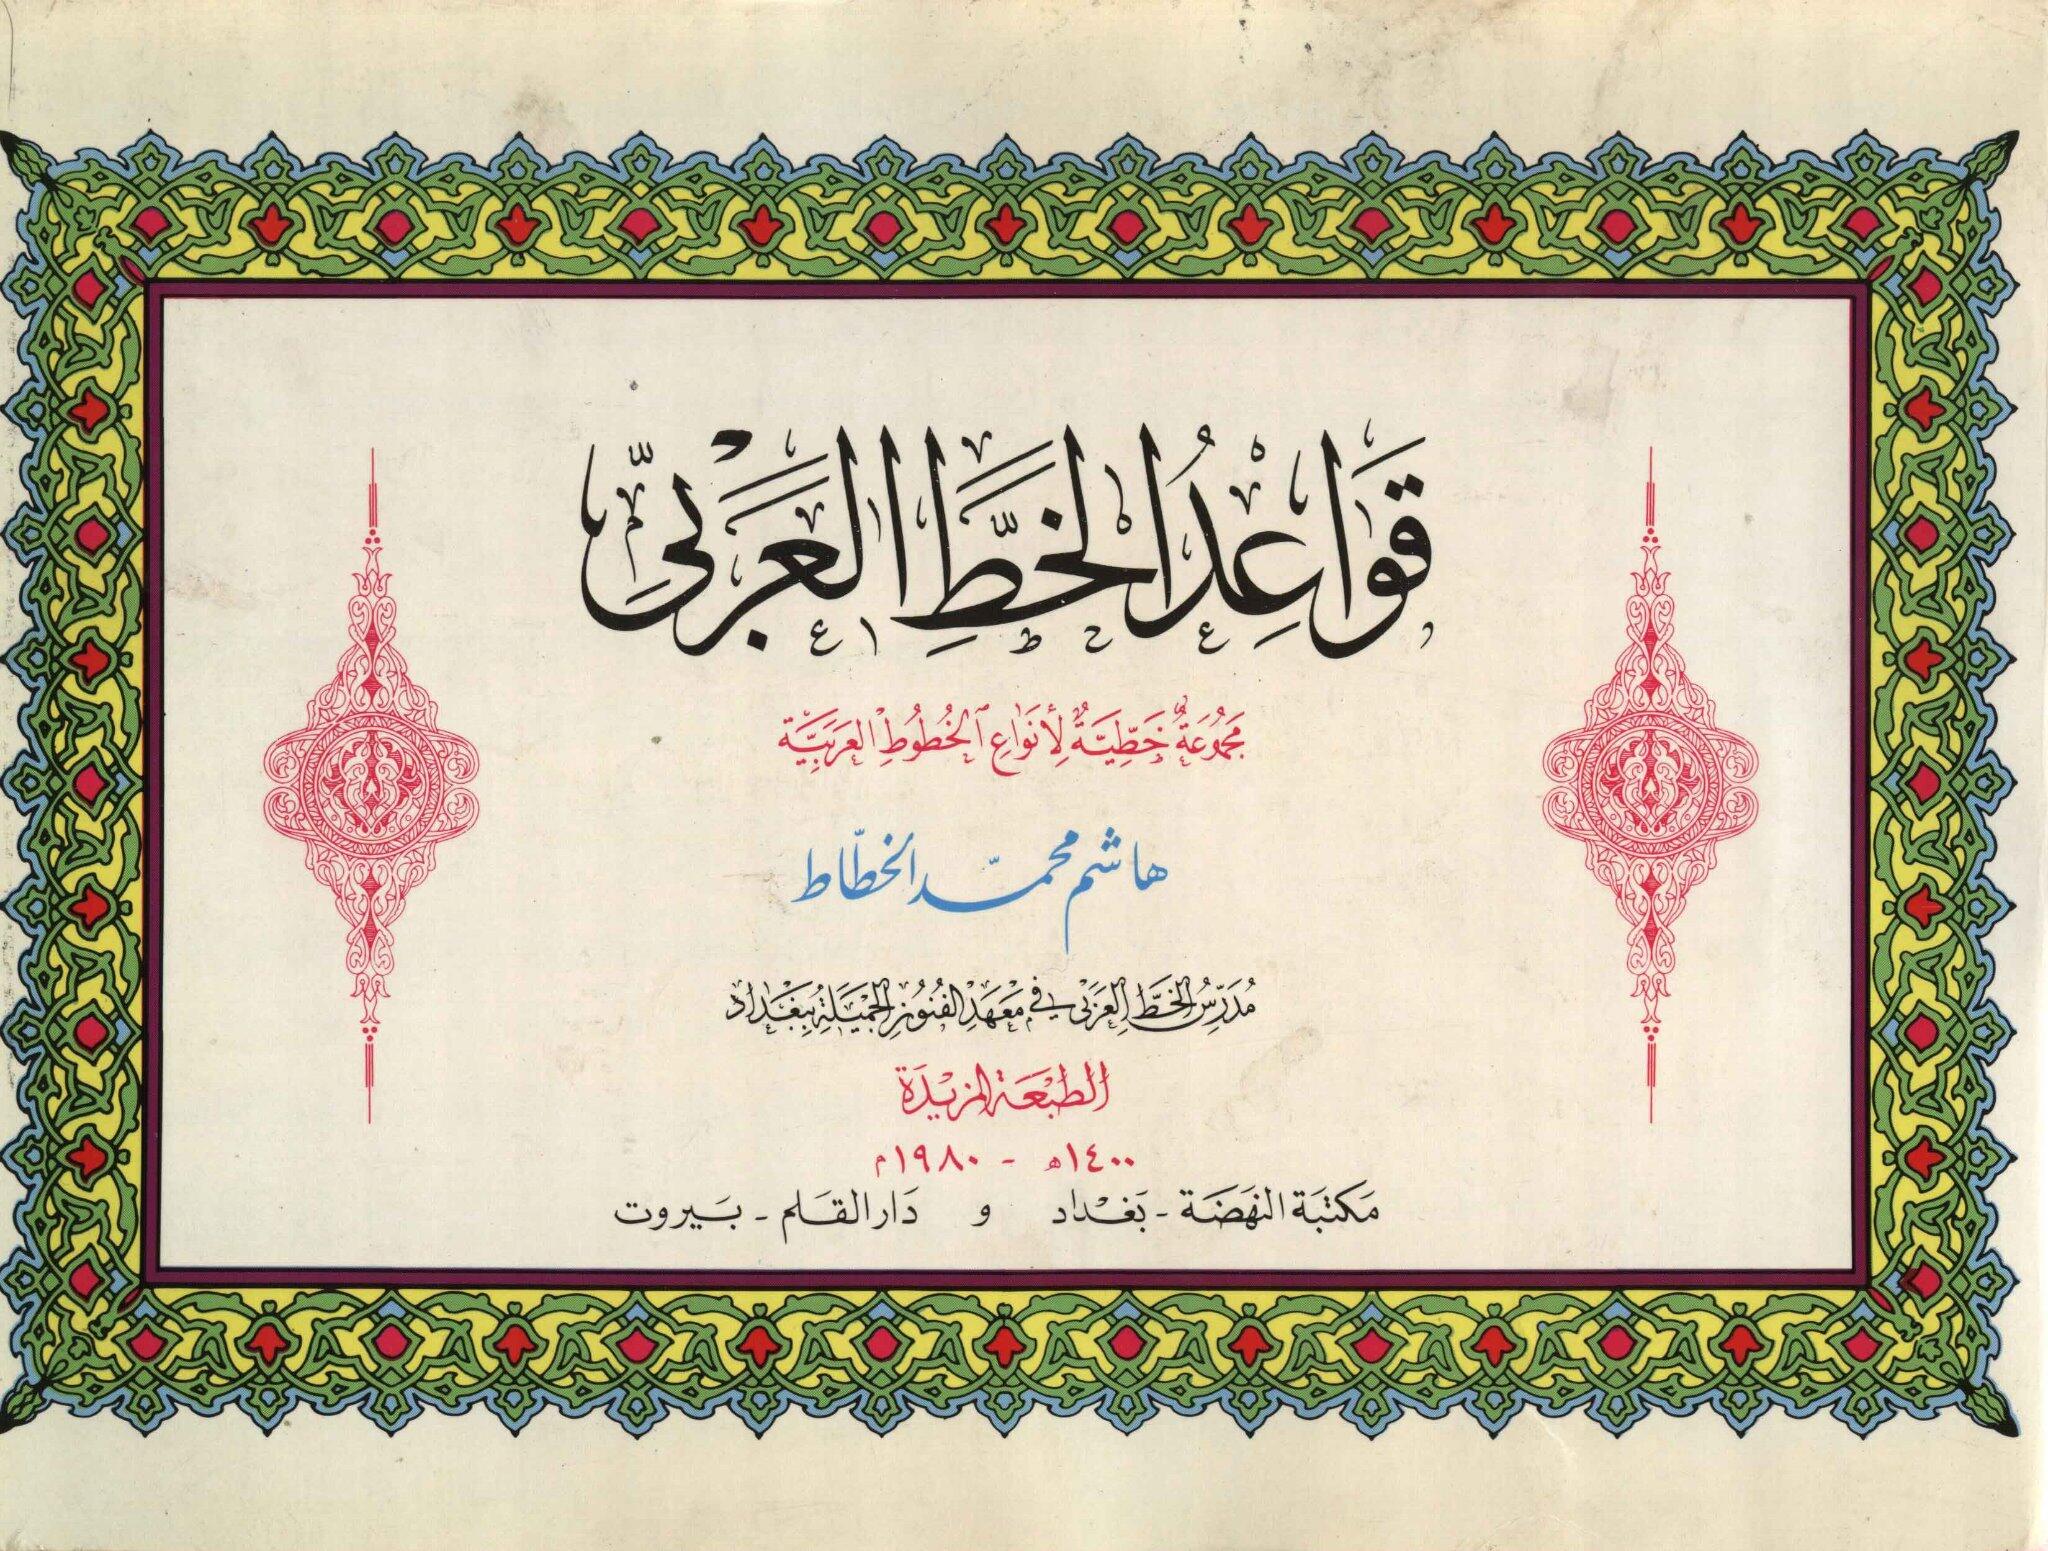 قَوَاعِدُ الخَطِّ العَرَبِيِّ
مَجْمُوعَةٌ خَطِّيَّةٌ لِأَنْوَاعِ الخُطُوطِ العَرَبِيَّةِ
هاشم محمّد الخطّاط
مُدَرِّسُ الخَطِّ العَرَبِي في مَعْهَدِ الفُنُونِ الجَمِيلَةِ بِبَغْدَاد
الطَبْعَة المَزِيْدَة
١٤٠٠هـ - ١٩٨٠م
مَكتبَة النَهضَة - بَغْدَاد و دَار القَلَم - بَيروت